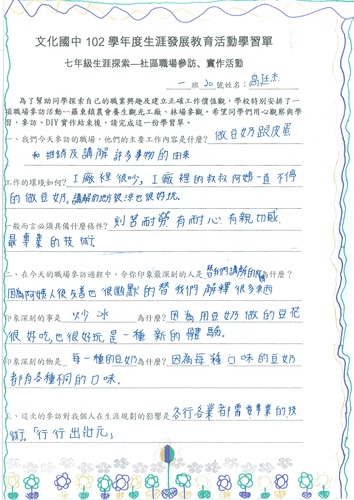 文化國中 102 學年度生涯發展教育活動學習單
七年級生涯探索—社區職場參訪、實作活動
一班 20 號姓名：高廷杰
為了幫助同學探索自己的職業興趣及建立正確工作價值觀，學校特別安排了一
項職場參訪活動—羅東鎮農會養生觀光工廠、林場參觀。希望同學們用心觀察與學
習，參訪、DIY 實作結束後，請完成這一份學習單。
一、我們今天參訪的職場，他們的主要工作內容是什麼？做豆奶跟皮蛋
和推銷及講解許多事物的由來
工作的環境如何？工廠裡很吵，工廠裡的叔叔阿姨一直不停
的做豆奶，講解的地方很涼也很好玩。
一般而言必須具備什麼條件？刻苦耐勞有耐心有親切感
最專業的技術
二、在今天的職場參訪過程中，令你印象最深刻的人是替我們講解的 為什麼？
因為阿姨人很友善也很幽默的替我們解釋很多東西
印象深刻的事是 炒冰 為什麼？因為用豆奶做的豆花
很好吃，也很好玩是一種新的體驗。
印象深刻的物是 每一種的豆奶 為什麼？因為每種口味的豆奶
都有各種不同的口味。
三、這次的參訪對我個人在生涯規劃的影響是 各行各業都需要專業的技
術。「行行出狀元」